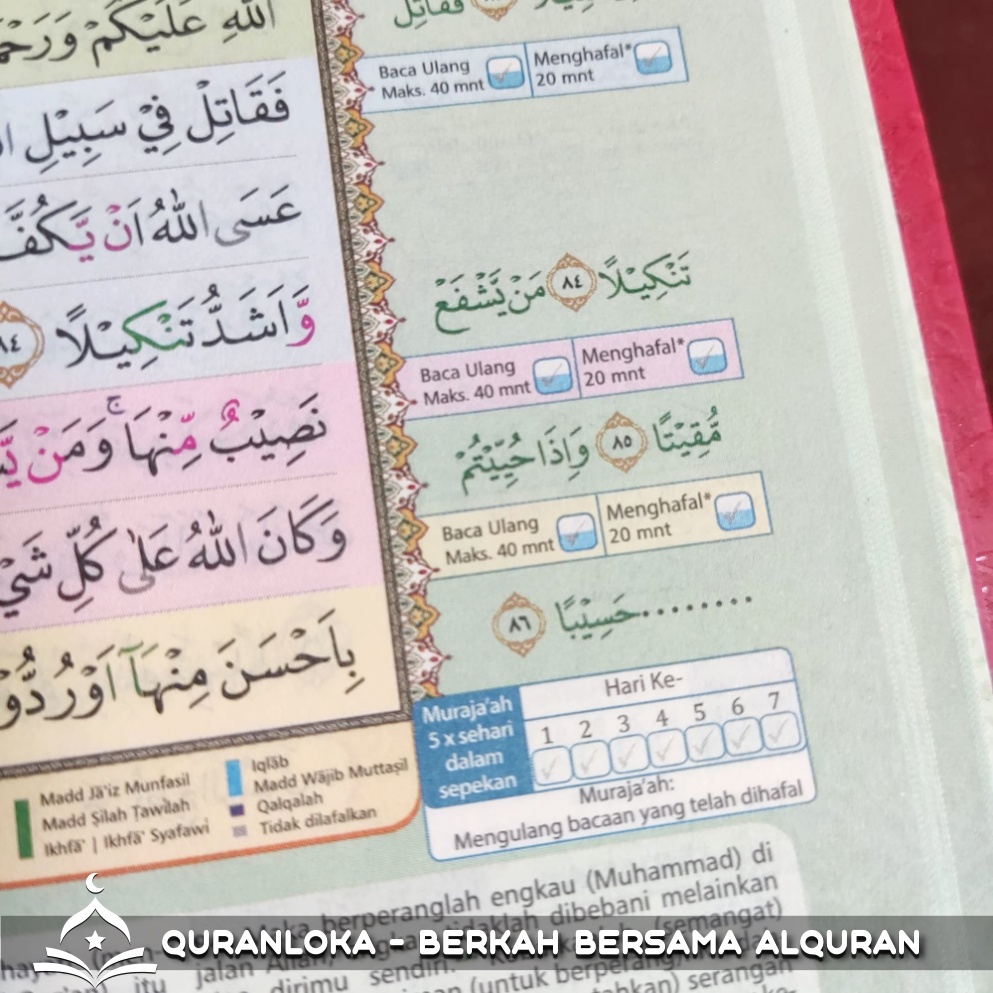 اللّٰهِ عَلَيْكُمْ
فَقَاتِلْ فِيْ سَبِيْلِ
عَسَى اللّٰهُ اَنْ يَّكُفَّ
وَّاَشَدُّ تَنْكِيْلًا ٨٤
نَصِيْبٌ مِّنْهَا ۚ وَمَنْ
وَكَانَ اللّٰهُ عَلٰى كُلِّ
بِاَحْسَنَ مِنْهَآ اَوْ
فَقَاتِلْ
Baca Ulang
Maks. 40 mnt
Menghafal*
20 mnt
تَنْكِيْلًا ٨٤ مَنْ يَّشْفَعْ
Baca Ulang
Maks. 40 mnt
Menghafal*
20 mnt
مُّقِيْتًا ٨٥ وَاِذَا حُيِّيْتُمْ
Baca Ulang
Maks. 40 mnt
Menghafal*
20 mnt
.........حَسِيْبًا ٨٦
Muraja'ah
5 x sehari
dalam
sepekan
Hari Ke-
1 2 3 4 5 6 7
Muraja'ah:
Mengulang bacaan yang telah dihafal
Madd Jā'iz Munfasil
Madd Ṣilah Ṭawīlah
Ikhfā' | Ikhfā' Syafawi
Iqlāb
Madd Wājib Muttaṣil
Qalqalah
Tidak dilafalkan
berperanglah engkau (Muhammad) di
dibebani melainkan
(semangat)
itu jalan
dirimu sendiri.
(untuk
serangan
QURANLOKA - BERKAH BERSAMA ALQURAN